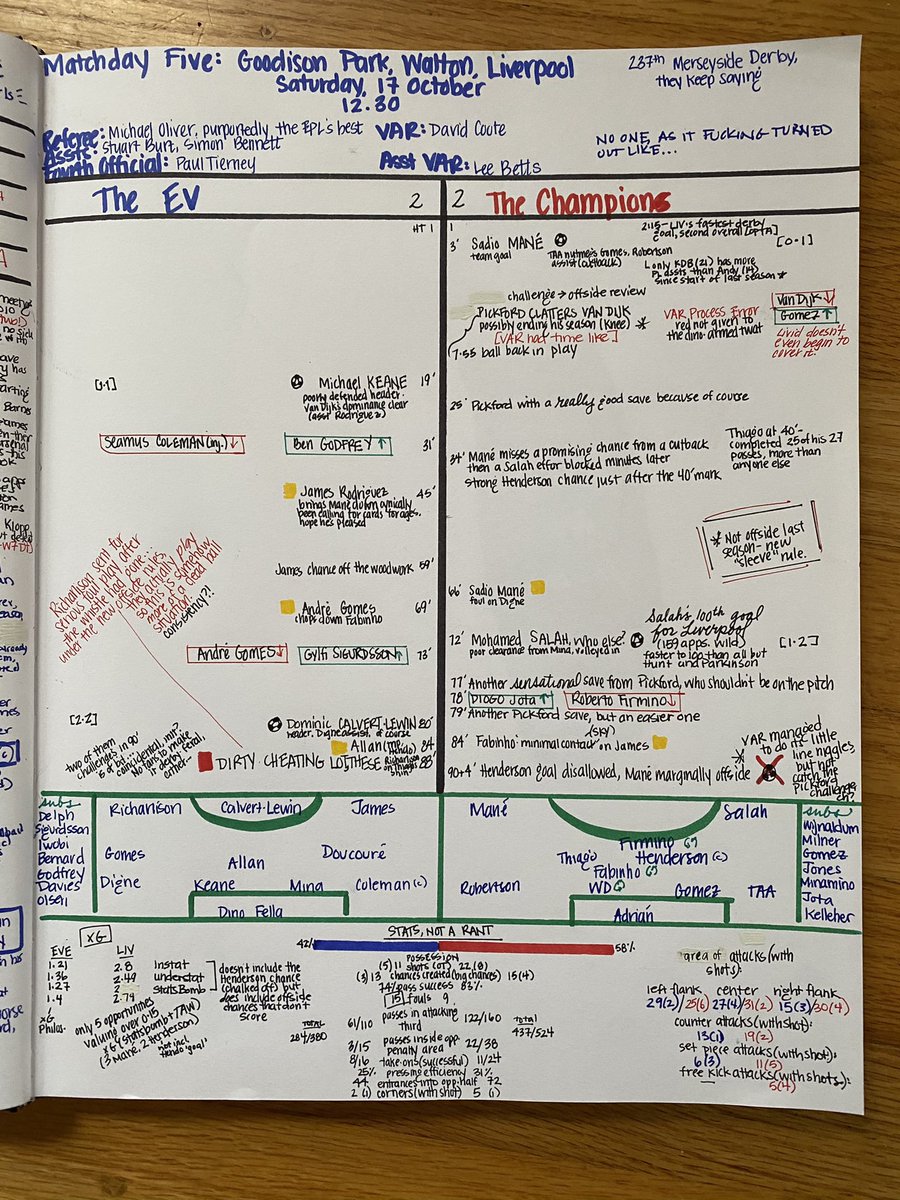 Matchday Five: Goodison Park, Walton, Liverpool
Saturday, 17 October
12.30
237th Merseyside Derby,
they keep saying
Referee: Michael Oliver, purportedly the EPL's best
Assts: Stuart Burt, Simon Bennett
Fourth Official: Paul Tierney
VAR: David Coote
Asst VAR: Lee Betts
NO ONE, AS IT FUCKING TURNED
OUT LIKE...
The EV 2
2 The Champions
HT 1
1
3' Sadio MANÉ
team goal
TAA nutmegs Gomes, Robertson
assist (cutback)
2:15-LIV's fastest derby
goal, second overall [OPTA]
[0-1]
only KDB (21) has more
PL assts than Andy (14)
since start of last season
challenge → offside review
PICKFORD CLATTERS VAN DIJK
possibly ending his season (knee) *
[VAR had time like]
7:55 ball back in play
VAR Process Error
red not given to
the dino-armed twat
Van Dijk ↓
Gomez ↑
Livid doesn't
even begin to
cover it.
[1-1]
Michael KEANE 19'
poorly defended header.
Van Dijk's dominance clear
(asst Rodriguez)
25' Pickford with a really good save because of course
Seamus COLEMAN (inj.) ↓
Ben GODFREY ↑ 31'
34' Mané misses a promising chance from a cutback
then a Salah effor blocked minutes later
strong Henderson chance just after the 40' mark
Thiago at 40'-
completed 25 of his 27
passes, more than
anyone else
James Rodriguez 45'
brings Mané down cynically
been calling for cards for ages,
hope he's pleased
* Not offside last
season-new
"sleeve" rule.
Richarlison sent for
serious foul play after
the whistle had gone...
under the new offside rules,
they actually play
so this is somehow
more of a dead ball
situation.
consistency?!
James chance off the woodwork 59'
66' Sadio Mané
foul on Digne
André Gomes 69'
chops down Fabinho
72' Mohamed SALAH, who else?
poor clearance from Mina, volleyed in
Salah's 100th goal
for Liverpool
(159 apps. wild)
faster to 100 than all but
Hunt and Parkinson
[1-2]
André GOMES ↓
Gylfi SIGURDSSON ↑ 73'
77' Another sensational save from Pickford, who shouldn't be on the pitch
78' DIOGO Jota ↑
Roberto Firmino ↓
79' Another Pickford save, but an easier one
[2-2]
Dominic CALVERT-LEWIN 80'
header. Digne assist, of course
Allan 84
84' Fabinho: minimal contact on James
DIRTY CHEATING 88'
Richarlison
on Thiago's
shin
two of them
challenges in 90'
coincidental, init?
90+4' Henderson goal disallowed, Mané marginally offside
VAR managed
to do its little
line niggles
but not
catch the
Pickford
challenge,
eh?
subs
Delph
Sigurdsson
Iwobi
Bernard
Godfrey
Davies
Olsen
Richarlison Calvert-Lewin James
Gomes Allan Doucouré
Digne Keane Mina Coleman (c)
Dino Fella
Mané Salah
Firmino
Thiago Henderson (c)
Fabinho
Robertson VVD Gomez TAA
Adrián
subs
Wijnaldum
Milner
Gomez
Jones
Minamino
Jota
Kelleher
STATS, NOT A RANT
42% 58%
xG
EVE LIV
1.21 2.8 Instat
1.36 2.49 understat
1.27 2 StatsBomb
1.4 2.79 xG Philos.
doesn't include the
Henderson chance
(chalked off) but
does include offside
chances that don't
score
only 5 opportunities
valuing over 0.15
xG (Statsbomb + TAW)
(3 Mane, 2 Henderson)
not incl
Hendo 'goal'
POSSESSION
(5) 11 shots (OT) 22 (8)
(3) 13 chances created (big chances) 15 (4)
74% pass success 83%
15 fouls 9
61/110 passes in attacking third 122/160
Total
284/380
Total
437/524
3/15 passes inside opp penalty area 22/38
8/16 take-ons (successful) 11/24
25% pressing efficiency 31%
44 entrances into opp. half 72
2 (1) corners (with shot) 5 (1)
area of attacks (with
shot):
left flank center right flank
29(2)/25(6) 27(4)/31(2) 15(3)/30(4)
counter attacks (with shot):
13(1) 19(2)
set piece attacks (with shot):
6(3) 11(5)
free kick attacks (with shots):
— 5(4)